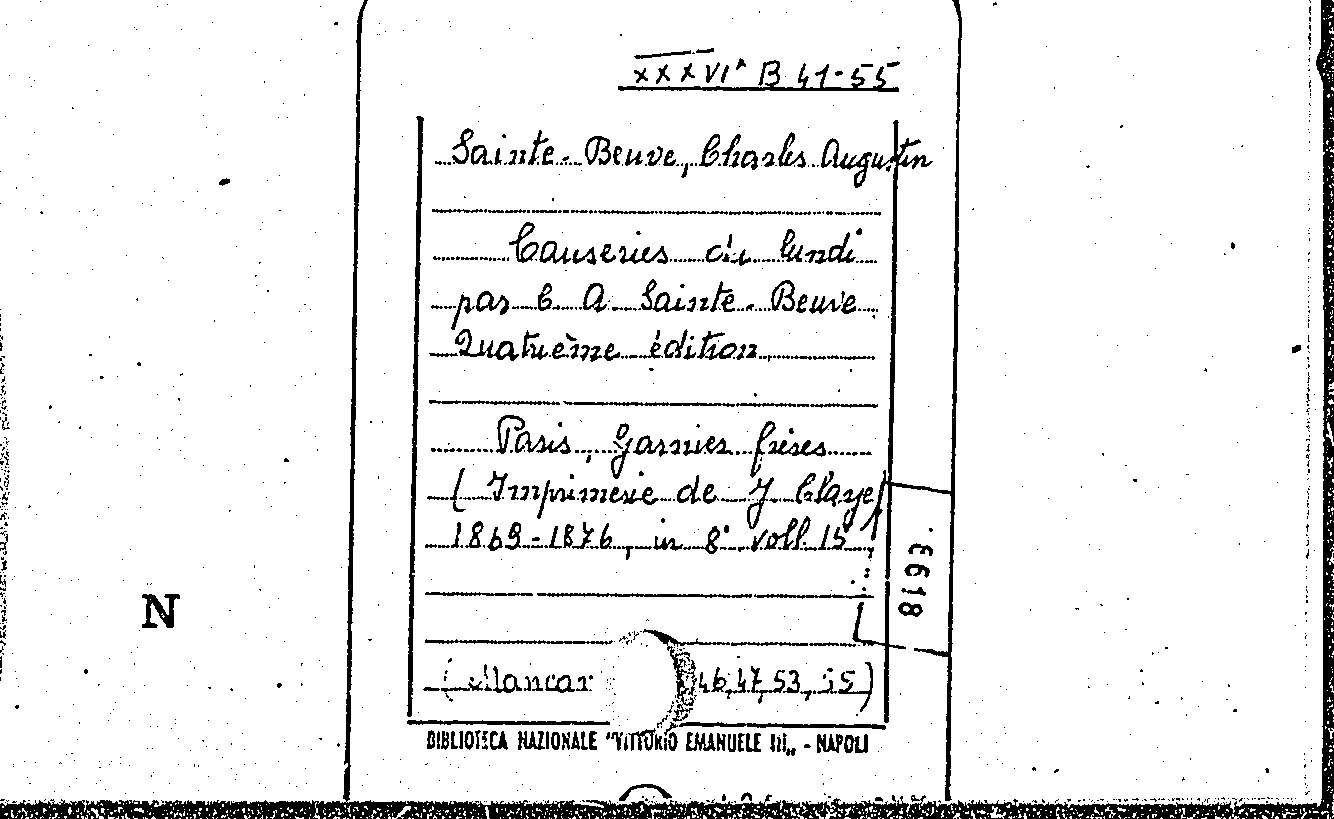 XXXVIᴬ B 41-55
Sainte-Beuve, Charles Augustin
Causeries du lundi
par C. A. Sainte-Beuve
Quatrième édition
Paris, Garnier frères
(Imprimerie de J. Claye)
1869-1876, in 8° voll. 15
8193
N
46, 47, 53, 55)
BIBLIOTECA NAZIONALE "VITTORIO EMANUELE III„ - NAPOLI